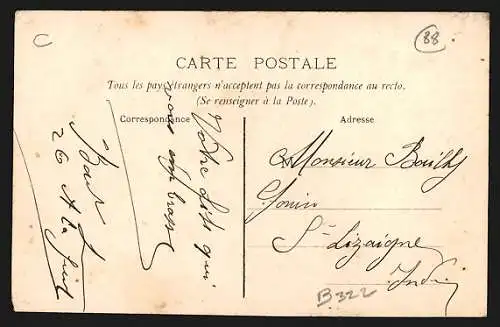 C
88
CARTE POSTALE
Tous les pays étrangers n'acceptent pas la correspondance au recto.
(Se renseigner à la Poste)
Correspondance
Adresse
Votre fils qui
vous embrasse
26
Monsieur
St Lizaigne
Indre
B322